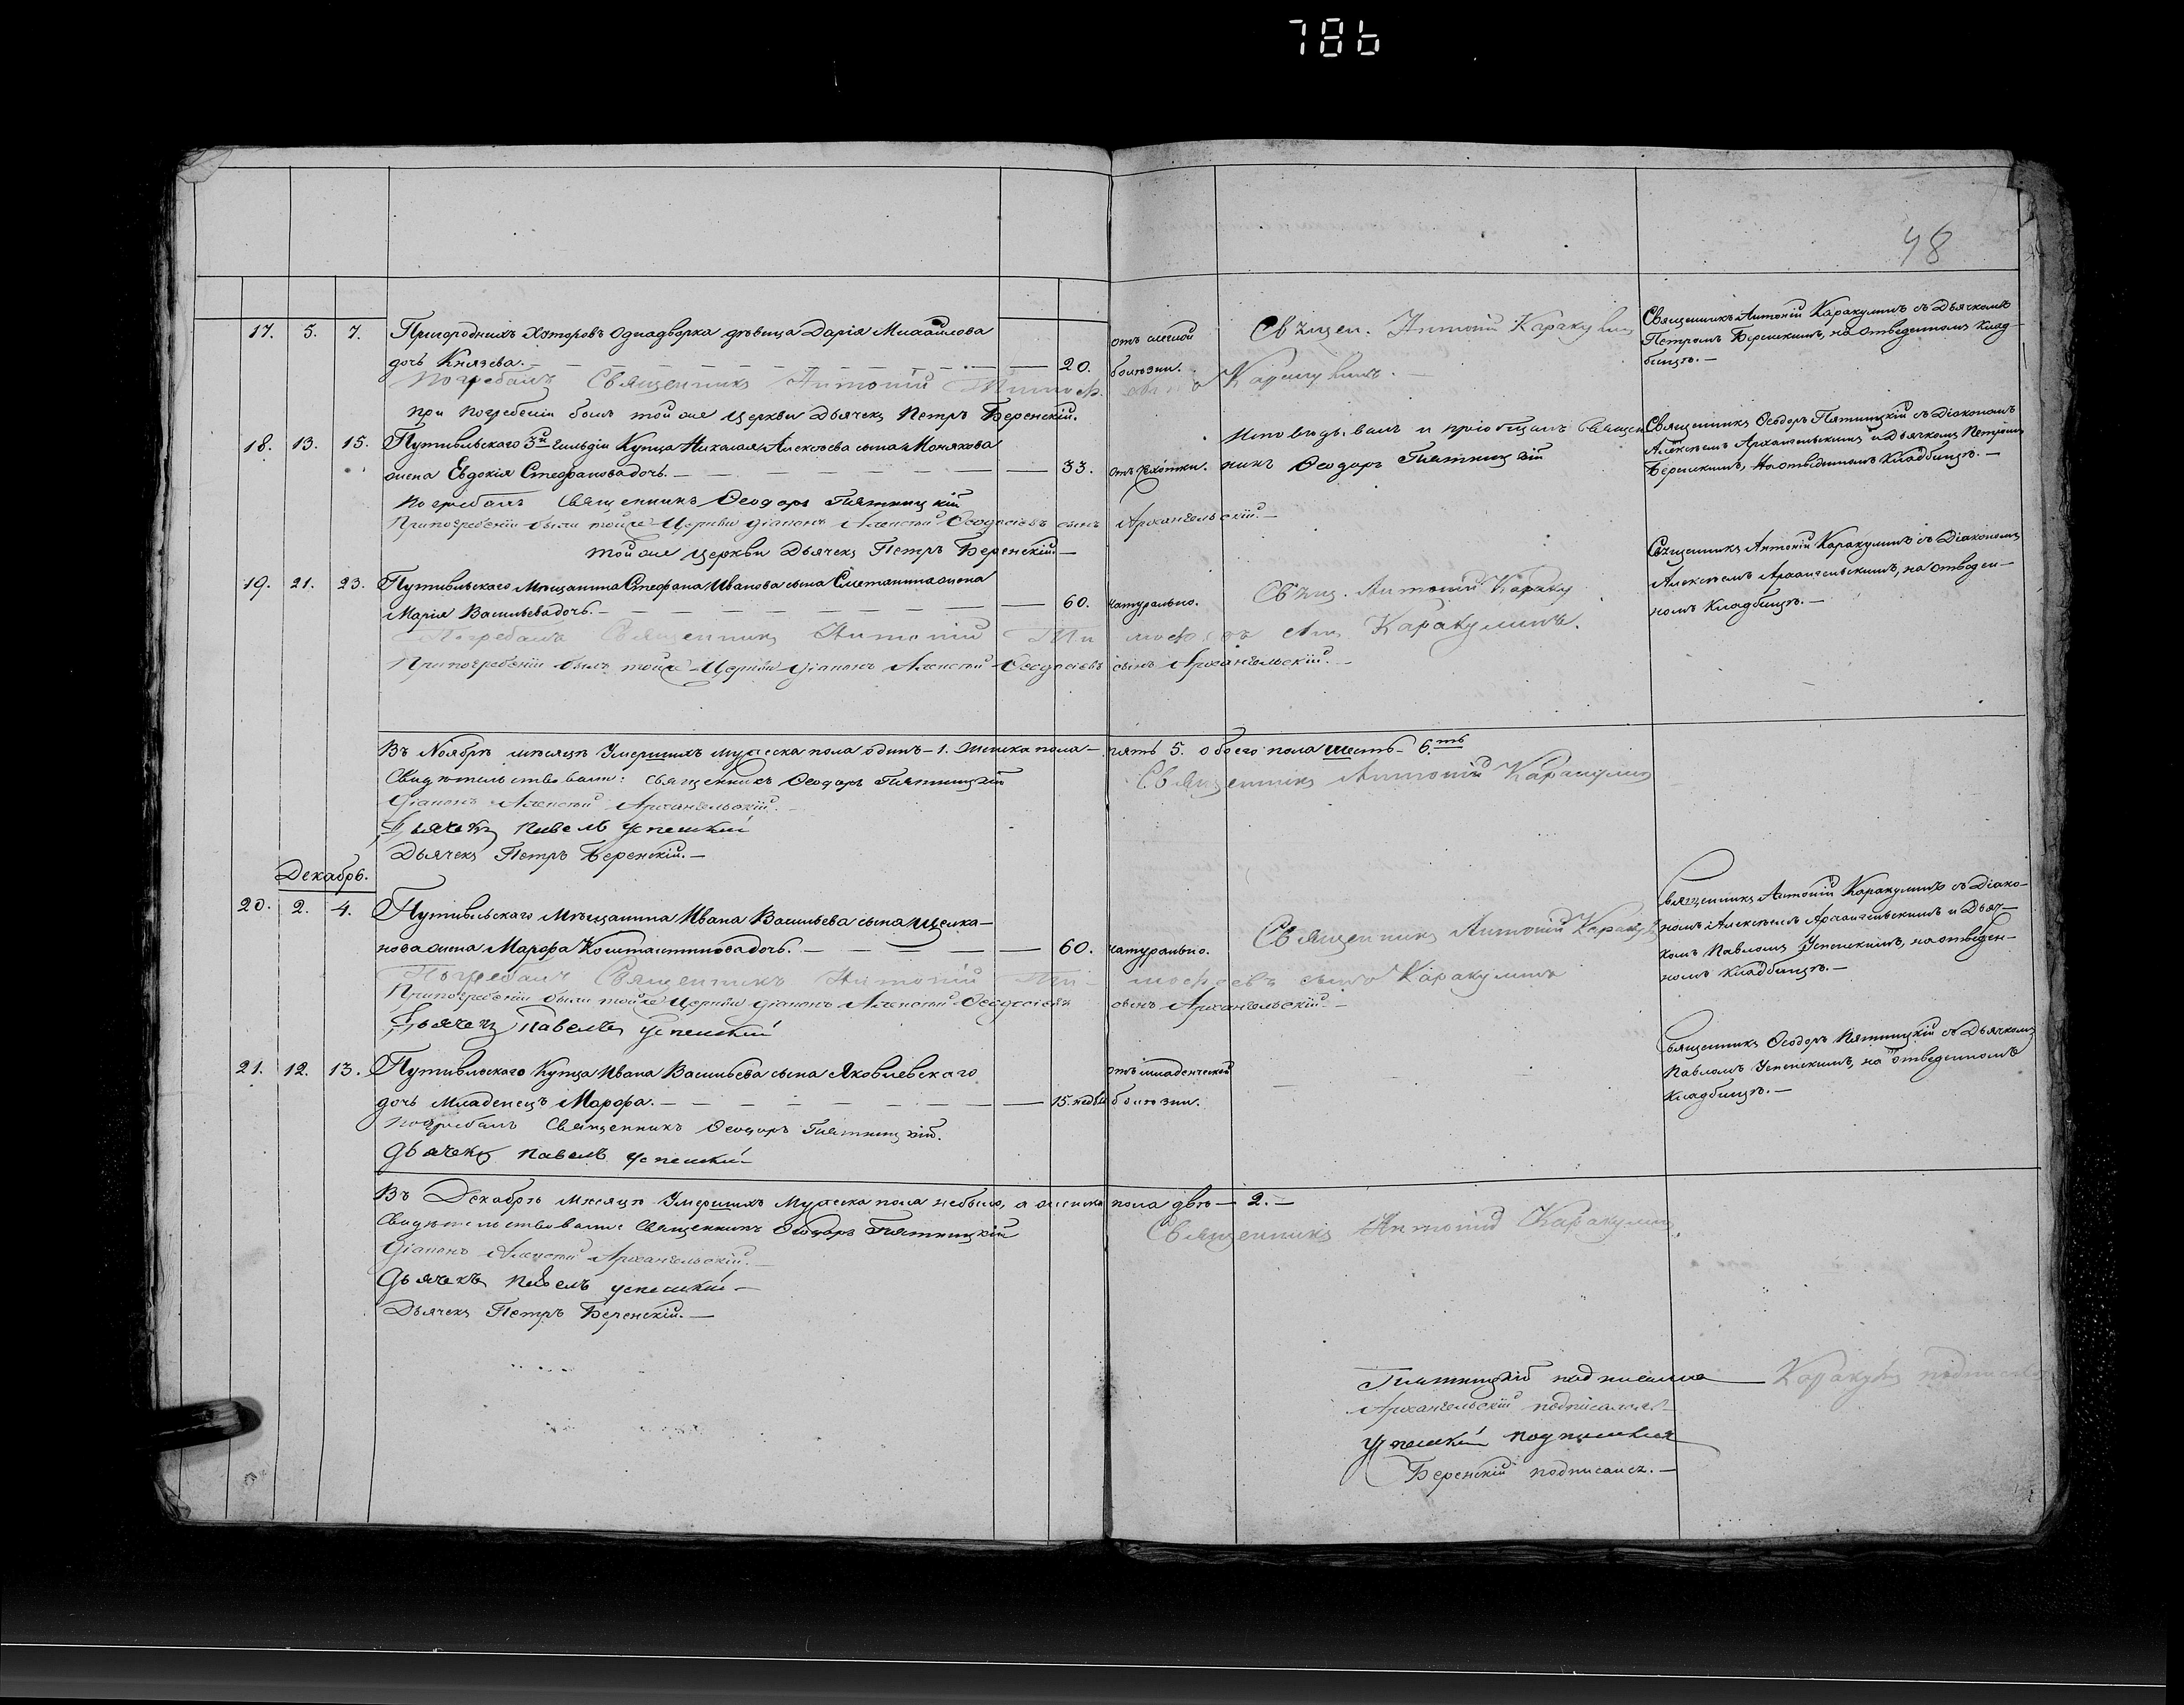 786
48
17. 5. 7. Пригородныхъ Хуторовъ Однадворка дѣвица Дарія Михайлова
дочь Князева. — 20. отъ болѣзни. Священ. Антоній Каракулинъ
Священникъ Антоній Каракулинъ съ Дьячкомъ
Петромъ Беренскимъ, на отведенномъ клад-
бищѣ. —
Погребалъ Священникъ Антоній Тимоф. Каракулинъ. —
при погребеніи былъ той же церкви Дьячекъ Петръ Беренскій.
18. 13. 15. Путивльскаго 3й гильдіи Купца Николая Алексѣева сына Монякова
жена Евдокія Стефанова дочь. — 33. отъ чахотки.
Исповѣдывалъ и пріобщалъ Священ
никъ Ѳеодоръ Пятницкій
Священникъ Ѳеодоръ Пятницкій съ Діакономъ
Алексѣемъ Архангельскимъ и Дьячкомъ Петромъ
Беренскимъ, на отведенномъ кладбищѣ. —
Погребалъ Священникъ Ѳеодоръ Пятницкій
При погребеніи были тойже Церкви діаконъ Алексѣй Ѳеодосіевъ сынъ Архангельскій. —
той же церкви Дьячекъ Петръ Беренскій —
19. 21. 23. Путивльскаго Мѣщанина Стефана Иванова сына Сметанина жена
Марія Васильева дочь. — 60. натурально. Свящ. Антоній Караку
Священникъ Антоній Каракулинъ съ Діакономъ
Алексѣемъ Архангельскимъ, на отведен-
номъ кладбищѣ. —
Погребалъ Священникъ Антоній Тимофеевъ Каракулинъ.
При погребеніи былъ тойже Церкви діаконъ Алексѣй Ѳеодосіевъ сынъ Архангельскій. —
Въ Ноябрѣ мѣсяцѣ Умершихъ мужеска пола одинъ — 1. женска пола — пять 5. обоего пола шесть — 6.ть
Свидѣтельствовали: священникъ Ѳеодоръ Пятницкій
Священникъ Антоній Каракулинъ
Діаконъ Алексѣй Архангельскій. —
Дьячекъ Павелъ Успенскій
Дьячекъ Петръ Беренскій. —
Декабрь.
20. 2. 4. Путивльскаго Мѣщанина Ивана Васильева сына Щелка-
нова жена Марѳа Константинова дочь. — 60. натурально. Священникъ Антоній Каракул
Священникъ Антоній Каракулинъ съ Діако-
номъ Алексѣемъ Архангельскимъ и Дьяч-
комъ Павломъ Успенскимъ, на отведен-
номъ кладбищѣ. —
Погребалъ Священникъ Антоній Тимофеевъ сынъ Каракулинъ
При погребеніи были тойже Церкви діаконъ Алексѣй Ѳеодосіевъ сынъ Архангельскій —
Дьячекъ Павелъ Успенскій
21. 12. 13. Путивльскаго Купца Ивана Васильева сына Яковлевскаго
дочь Младенецъ Марѳа. — 15. недѣль отъ младенческой болѣзни.
Священникъ Ѳеодоръ Пятницкій съ Дьячкомъ
Павломъ Успенскимъ, на отведенномъ
кладбищѣ. —
Погребалъ Священникъ Ѳеодоръ Пятницкій.
Дьячекъ Павелъ Успенскій
Въ Декабрѣ мѣсяцѣ Умершихъ Мужеска пола небыло, а женска пола двѣ — 2. —
Свидѣтельствовали: Священникъ Ѳеодоръ Пятницкій
Священникъ Антоній Каракулин
Діаконъ Алексѣй Архангельскій. —
Дьячекъ Павелъ Успенскій —
Дьячекъ Петръ Беренскій. —
Пятницкій подписалъ — Каракулин подписалъ
Архангельскій подписался
Успенскій подписался
Беренскій подписалъ. —